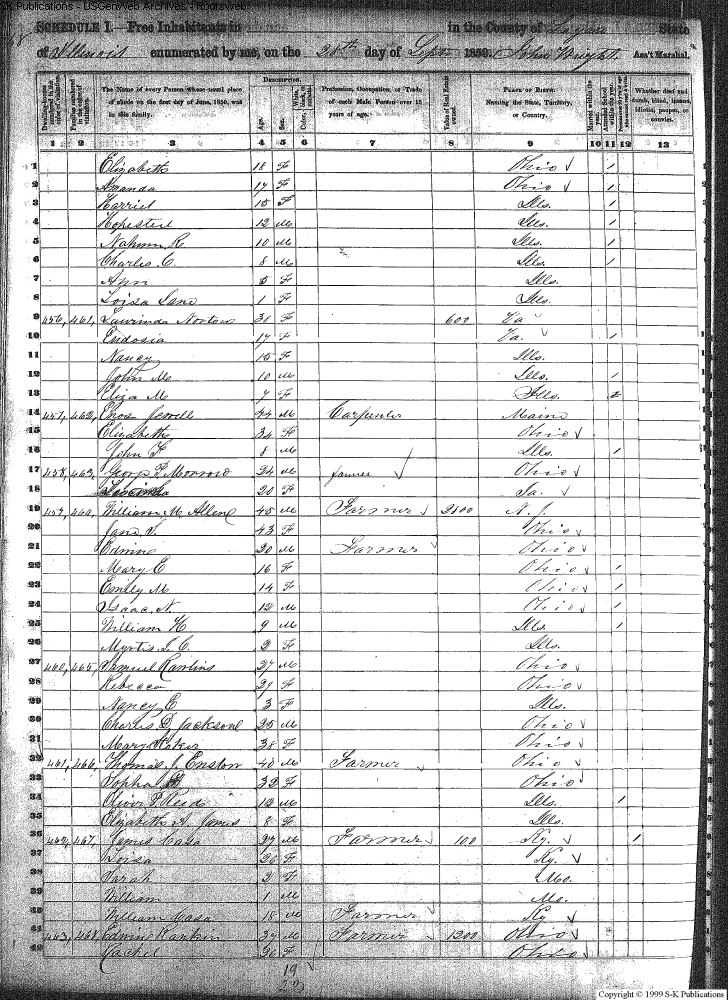 S-K Publications - USGenWeb Archives - Rootsweb
SCHEDULE I.—Free Inhabitants in in the County of Logan State
of Illinois enumerated by me, on the 28th day of Sept 1850. John Wright. Ass't Marshal.
Dwelling houses numbered in the order of visitation.
Families numbered in the order of visitation.
The Name of every Person whose usual place of abode on the first day of June, 1850, was in this family.
Description.
Age.
Sex.
White, black, or mulatto.
Color,
Profession, Occupation, or Trade of each Male Person over 15 years of age.
Value of Real Estate owned.
Place of Birth. Naming the State, Territory, or Country.
Married within the year.
Attended School within the year.
Whether deaf and dumb, blind, insane, idiotic, pauper, or convict.
1 2 3 4 5 6 7 8 9 10 11 12 13
1 Elizabeth 18 F Ohio /
2 Amanda 17 F Ohio /
3 Harriet 15 F Ills. /
4 12 M Ills. /
5 Nahum R. 10 M Ills. /
6 Charles C. 8 M Ills. /
7 Ann 5 F Ills.
8 Loisa Jane 1 F Ills.
9 456, 461, Laurinda Norton 38 F 600 Va
10 Eudosia 17 F Va. /
11 Nancy 15 F Ills.
12 John M 10 M Ills. /
13 Eliza M 7 F Ills.
14 457, 462, Enos Jewell 44 M Carpenter Maine
15 Elizabeth 34 F Ohio
16 John F 8 M Ills. /
17 458, 463, P. Morrow 24 M farmer Ohio
18 20 F
19 459, 464, William M. Allen 45 M Farmer 2800 N. J.
20 Jane S. 43 F Ohio
21 20 M Farmer Ohio
22 Mary E 16 F Ohio /
23 Emily M 14 F Ohio /
24 Isaac N. 12 M Ohio /
25 William H 9 M Ills. /
26 Myrtis J. C. 2 F Ills.
27 460, 465, Samuel Rawlins 27 M Ohio
28 Rebecca 29 F Ohio
29 Nancy E 3 F Ills.
30 Charles D. Jackson 25 M Ohio
31 Mary 38 F Ohio
32 461, 466, Thomas J. Enston 40 M Farmer Ohio
33 Sopha 32 F Ohio
34 Oliver P. Reid 12 M Ills. /
35 Elizabeth A. James 8 F Ills.
36 462, 467, James Casa 27 M Farmer 100 Ky. /
37 Loisa 20 F Ky.
38 Sarah 2 F Mo.
39 William 1 M Mo.
40 William Casa 18 M Farmer Ky
41 463, 468, Edwin Rankin 39 M Farmer 1200 Ohio
42 Rachel 36 F Ohio
19
23
Copyright © 1999 S-K Publications